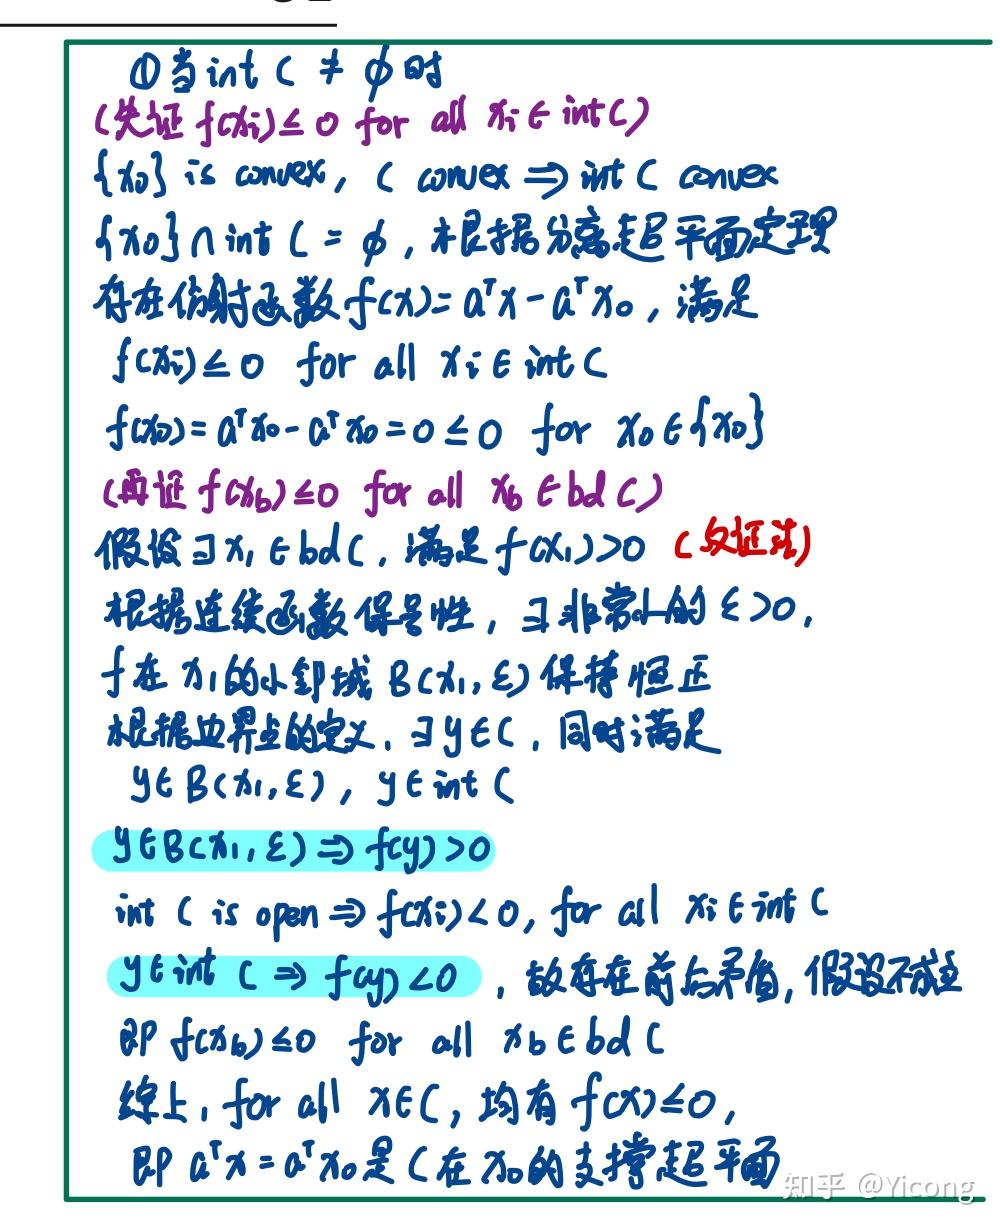 ①当int C ≠ ϕ时
(先证 f(xᵢ)≤0 for all xᵢ∈int C)
{x₀} is convex, C convex ⇒ int C convex
{x₀}∩int C = ϕ, 根据分离超平面定理
存在仿射函数 f(x)=aᵀx-aᵀx₀, 满足
f(xᵢ)≤0 for all xᵢ∈int C
f(x₀)=aᵀx₀-aᵀx₀=0≤0 for x₀∈{x₀}
(再证 f(x_b)≤0 for all x_b∈bd C)
假设∃x₁∈bd C, 满足f(x₁)>0 (反证法)
根据连续函数保号性, ∃非常小的ε>0,
f在x₁的小邻域B(x₁,ε)保持恒正
根据边界点的定义, ∃y∈C, 同时满足
y∈B(x₁,ε), y∈int C
y∈B(x₁,ε)⇒f(y)>0
int C is open⇒f(xᵢ)<0, for all xᵢ∈int C
y∈int C ⇒ f(y)<0, 故存在前后矛盾, 假设不成立
即 f(x_b)≤0 for all x_b∈bd C
综上, for all x∈C, 均有 f(x)≤0,
即 aᵀx=aᵀx₀是C在x₀的支撑超平面
知乎 @Yicong